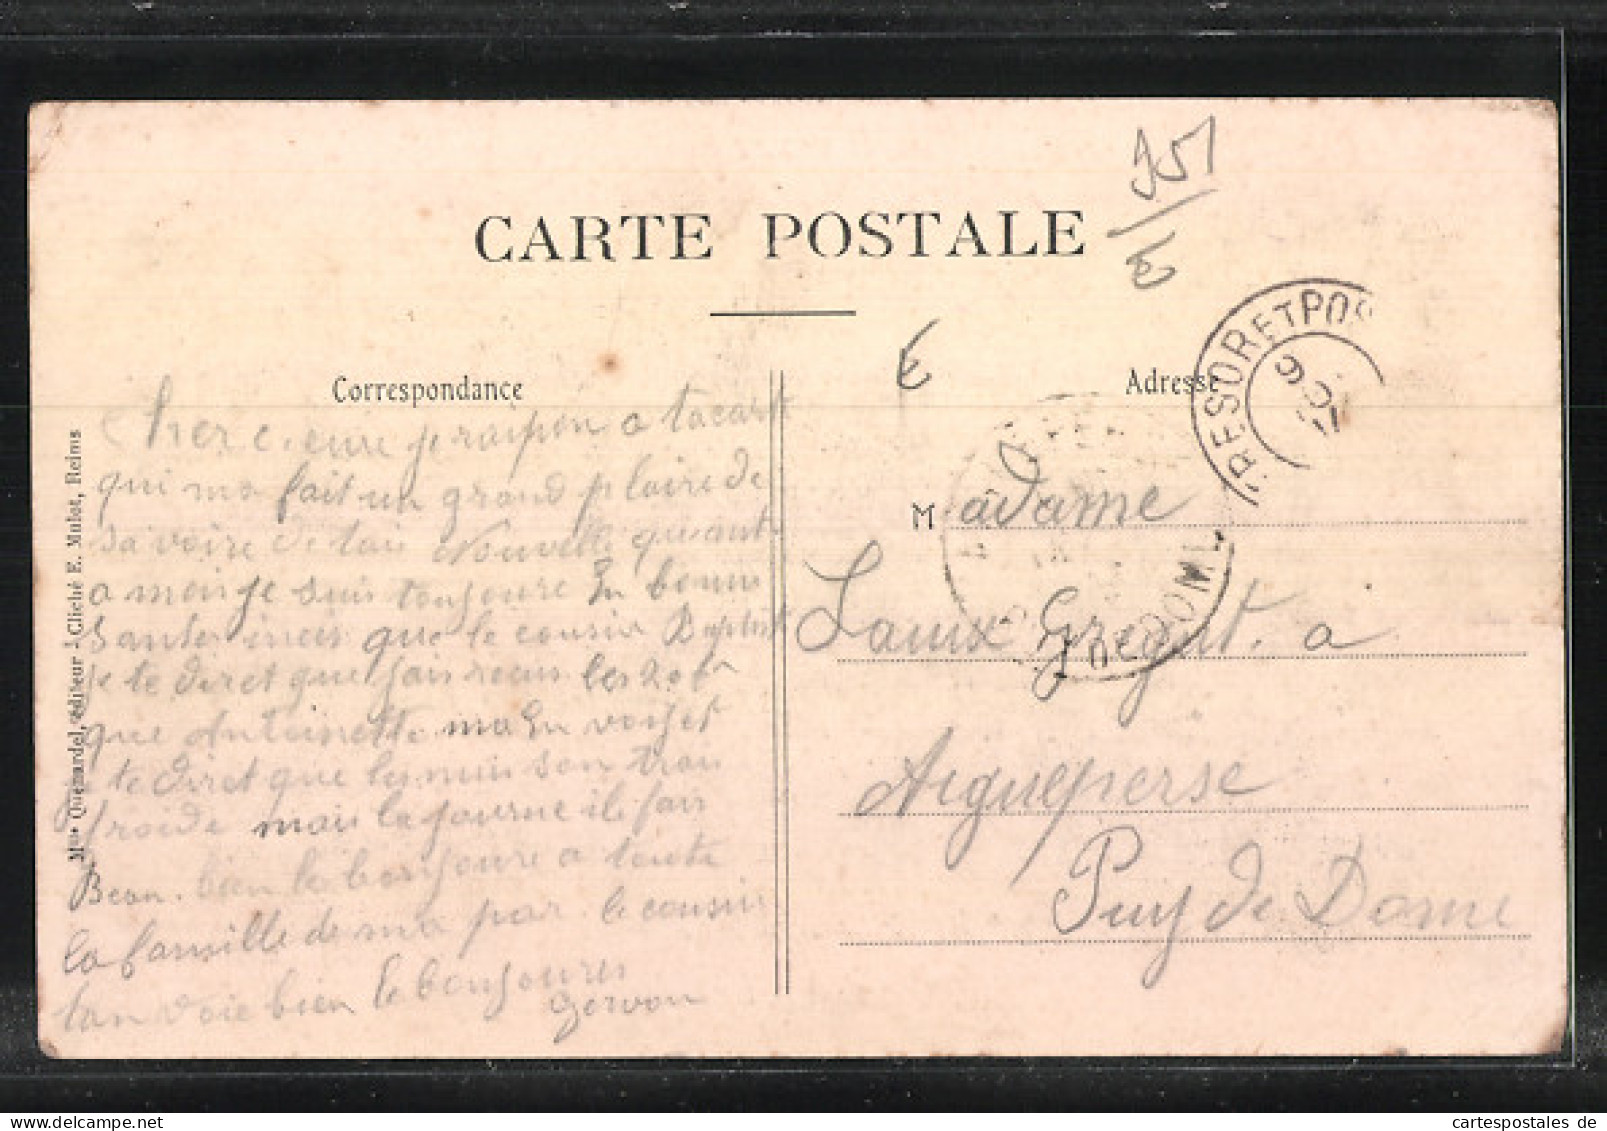 951
E
CARTE POSTALE
E
Correspondance
Adresse
TRESOR ET POS
9
Mme Quémardel, éditeur - Cliché E. Mulot, Reims
je raipon a ta cart
qui ma fait un grand plaire de
savoire de tai Nouvelle quant
a moi je suis toujoure En bonne
santer que le cousin Baptist
je te diret que
que Antoinette ma En voiyet
je te diret que les nuis son trai
froide mai la journe il fai
Beau. bien le bonjoure a toute
la famille de ma par. le cousin
tan voie bien le bonjoures
Gervon
Madame
Laux Gregut. a
Aigueperse
Puy de Dome
DOMI
cartespostales de